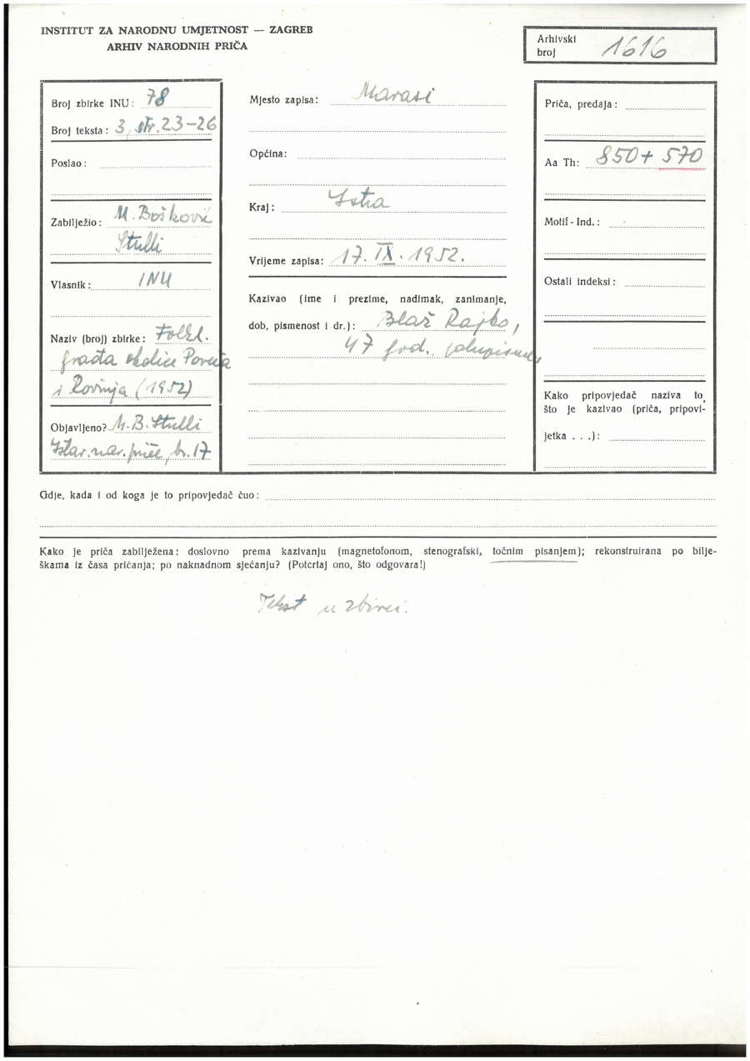 INSTITUT ZA NARODNU UMJETNOST — ZAGREB
ARHIV NARODNIH PRIČA
Arhivski broj 1616
Broj zbirke INU: 78
Broj teksta: 3, str. 23-26
Poslao:
Zabilježio: M. Bošković
Stulli
Vlasnik: INU
Naziv (broj) zbirke: Folkl.
građa okolice Poreča
i Rovinja (1952)
Objavljeno? M. B. Stulli
Istar. nar. priče, br. 17
Mjesto zapisa: Marasi
Općina:
Kraj: Istra
Vrijeme zapisa: 17. IX. 1952.
Kazivao (ime i prezime, nadimak, zanimanje,
dob, pismenost i dr.): Blaž Rajko,
47 god. polupismen
Priča, predaja:
Aa Th: 850 + 570
Motif - Ind.:
Ostali indeksi:
Kako pripovjedač naziva to,
što je kazivao (priča, pripovi-
jetka . . .):
Gdje, kada i od koga je to pripovjedač čuo:
Kako je priča zabilježena: doslovno prema kazivanju (magnetofonom, stenografski, točnim pisanjem); rekonstruirana po bilje-
škama iz časa pričanja; po naknadnom sjećanju? (Potcrtaj ono, što odgovara!)
Tekst u zbirci.